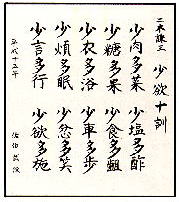 二木謙三 少欲十訓
少肉多菜 少塩多酢
少糖多果 少食多齟
少衣多浴 少車多歩
少煩多眠 少忿多笑
少言多行 少欲多施
平成十五年 佐伯